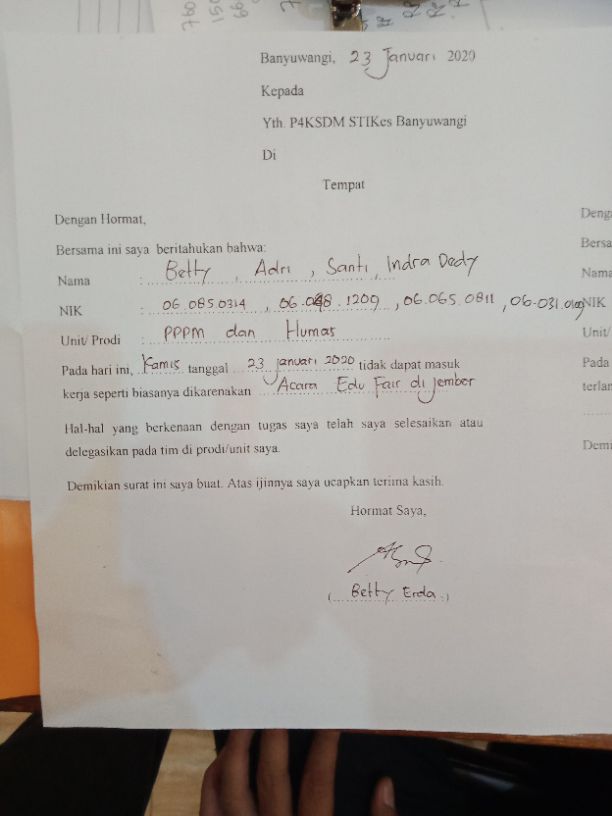 Banyuwangi, 23 Januari 2020
Kepada
Yth. P4KSDM STIKes Banyuwangi
Di
Tempat
Dengan Hormat,
Bersama ini saya beritahukan bahwa:
Nama : Betty, Adri, Santi, Indra Dedy
NIK : 06.0850314, 06.048.1209, 06.065.0811, 06.031.0109
Unit/ Prodi : PPPM dan Humas
Pada hari ini, Kamis tanggal 23 januari 2020 tidak dapat masuk
kerja seperti biasanya dikarenakan Acara Edu Fair di jember
Hal-hal yang berkenaan dengan tugas saya telah saya selesaikan atau
delegasikan pada tim di prodi/unit saya.
Demikian surat ini saya buat. Atas ijinnya saya ucapkan terima kasih.
Hormat Saya,
( Betty Erda )
Deng
Bersa
Nama
NIK
Unit/
Pada
terlar
Demi